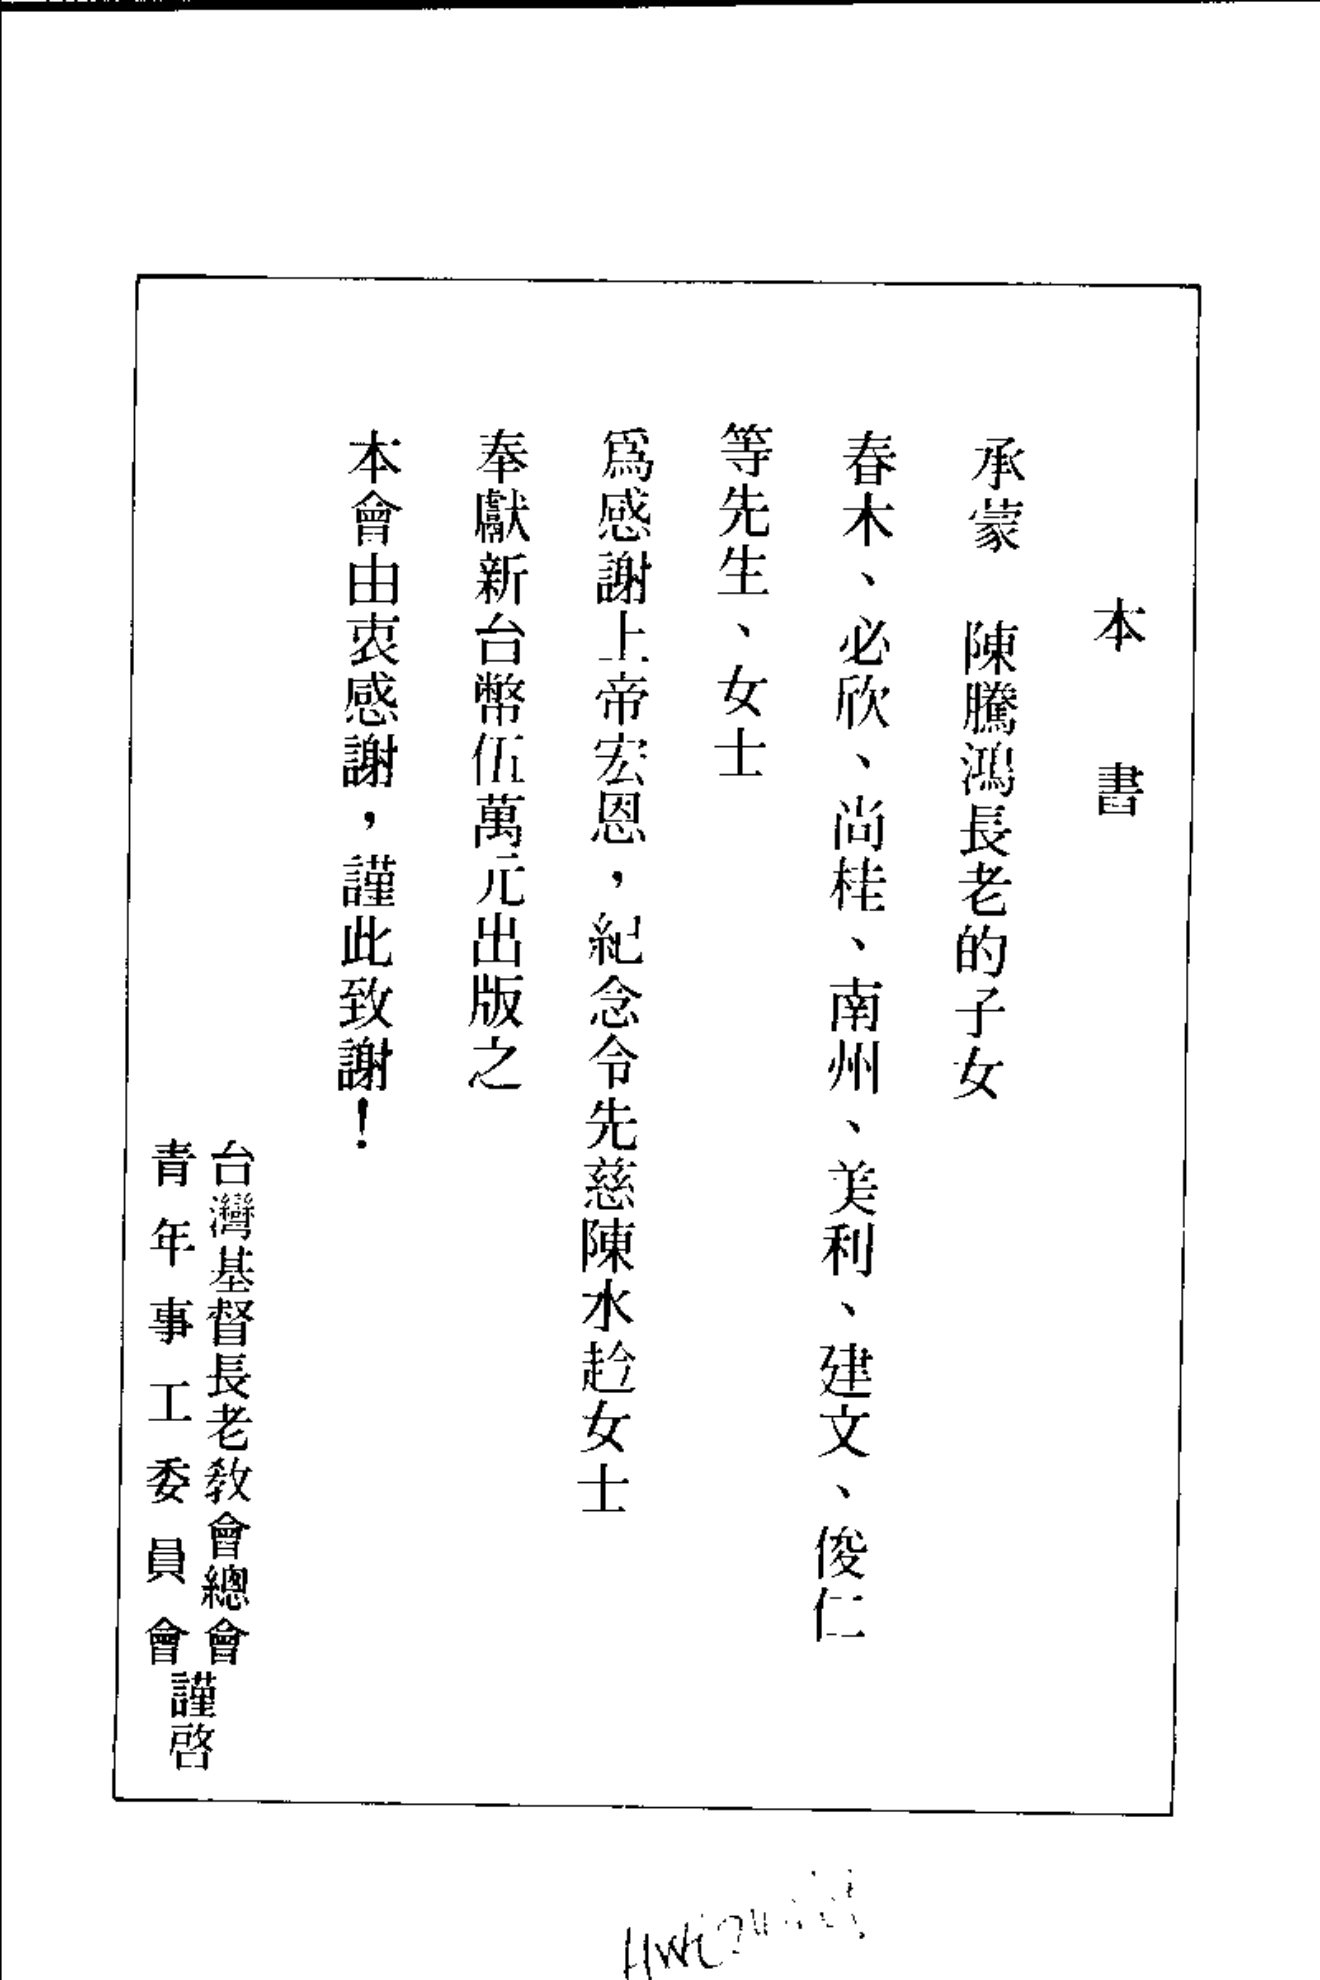 本書
承蒙　陳騰鴻長老的子女
春木、必欣、尚桂、南州、美利、建文、俊仁
等先生、女士
爲感謝上帝宏恩，紀念令先慈陳水趁女士
奉獻新台幣伍萬元出版之
本會由衷感謝，謹此致謝！
台灣基督長老敎會總會
青年事工委員會
謹啓